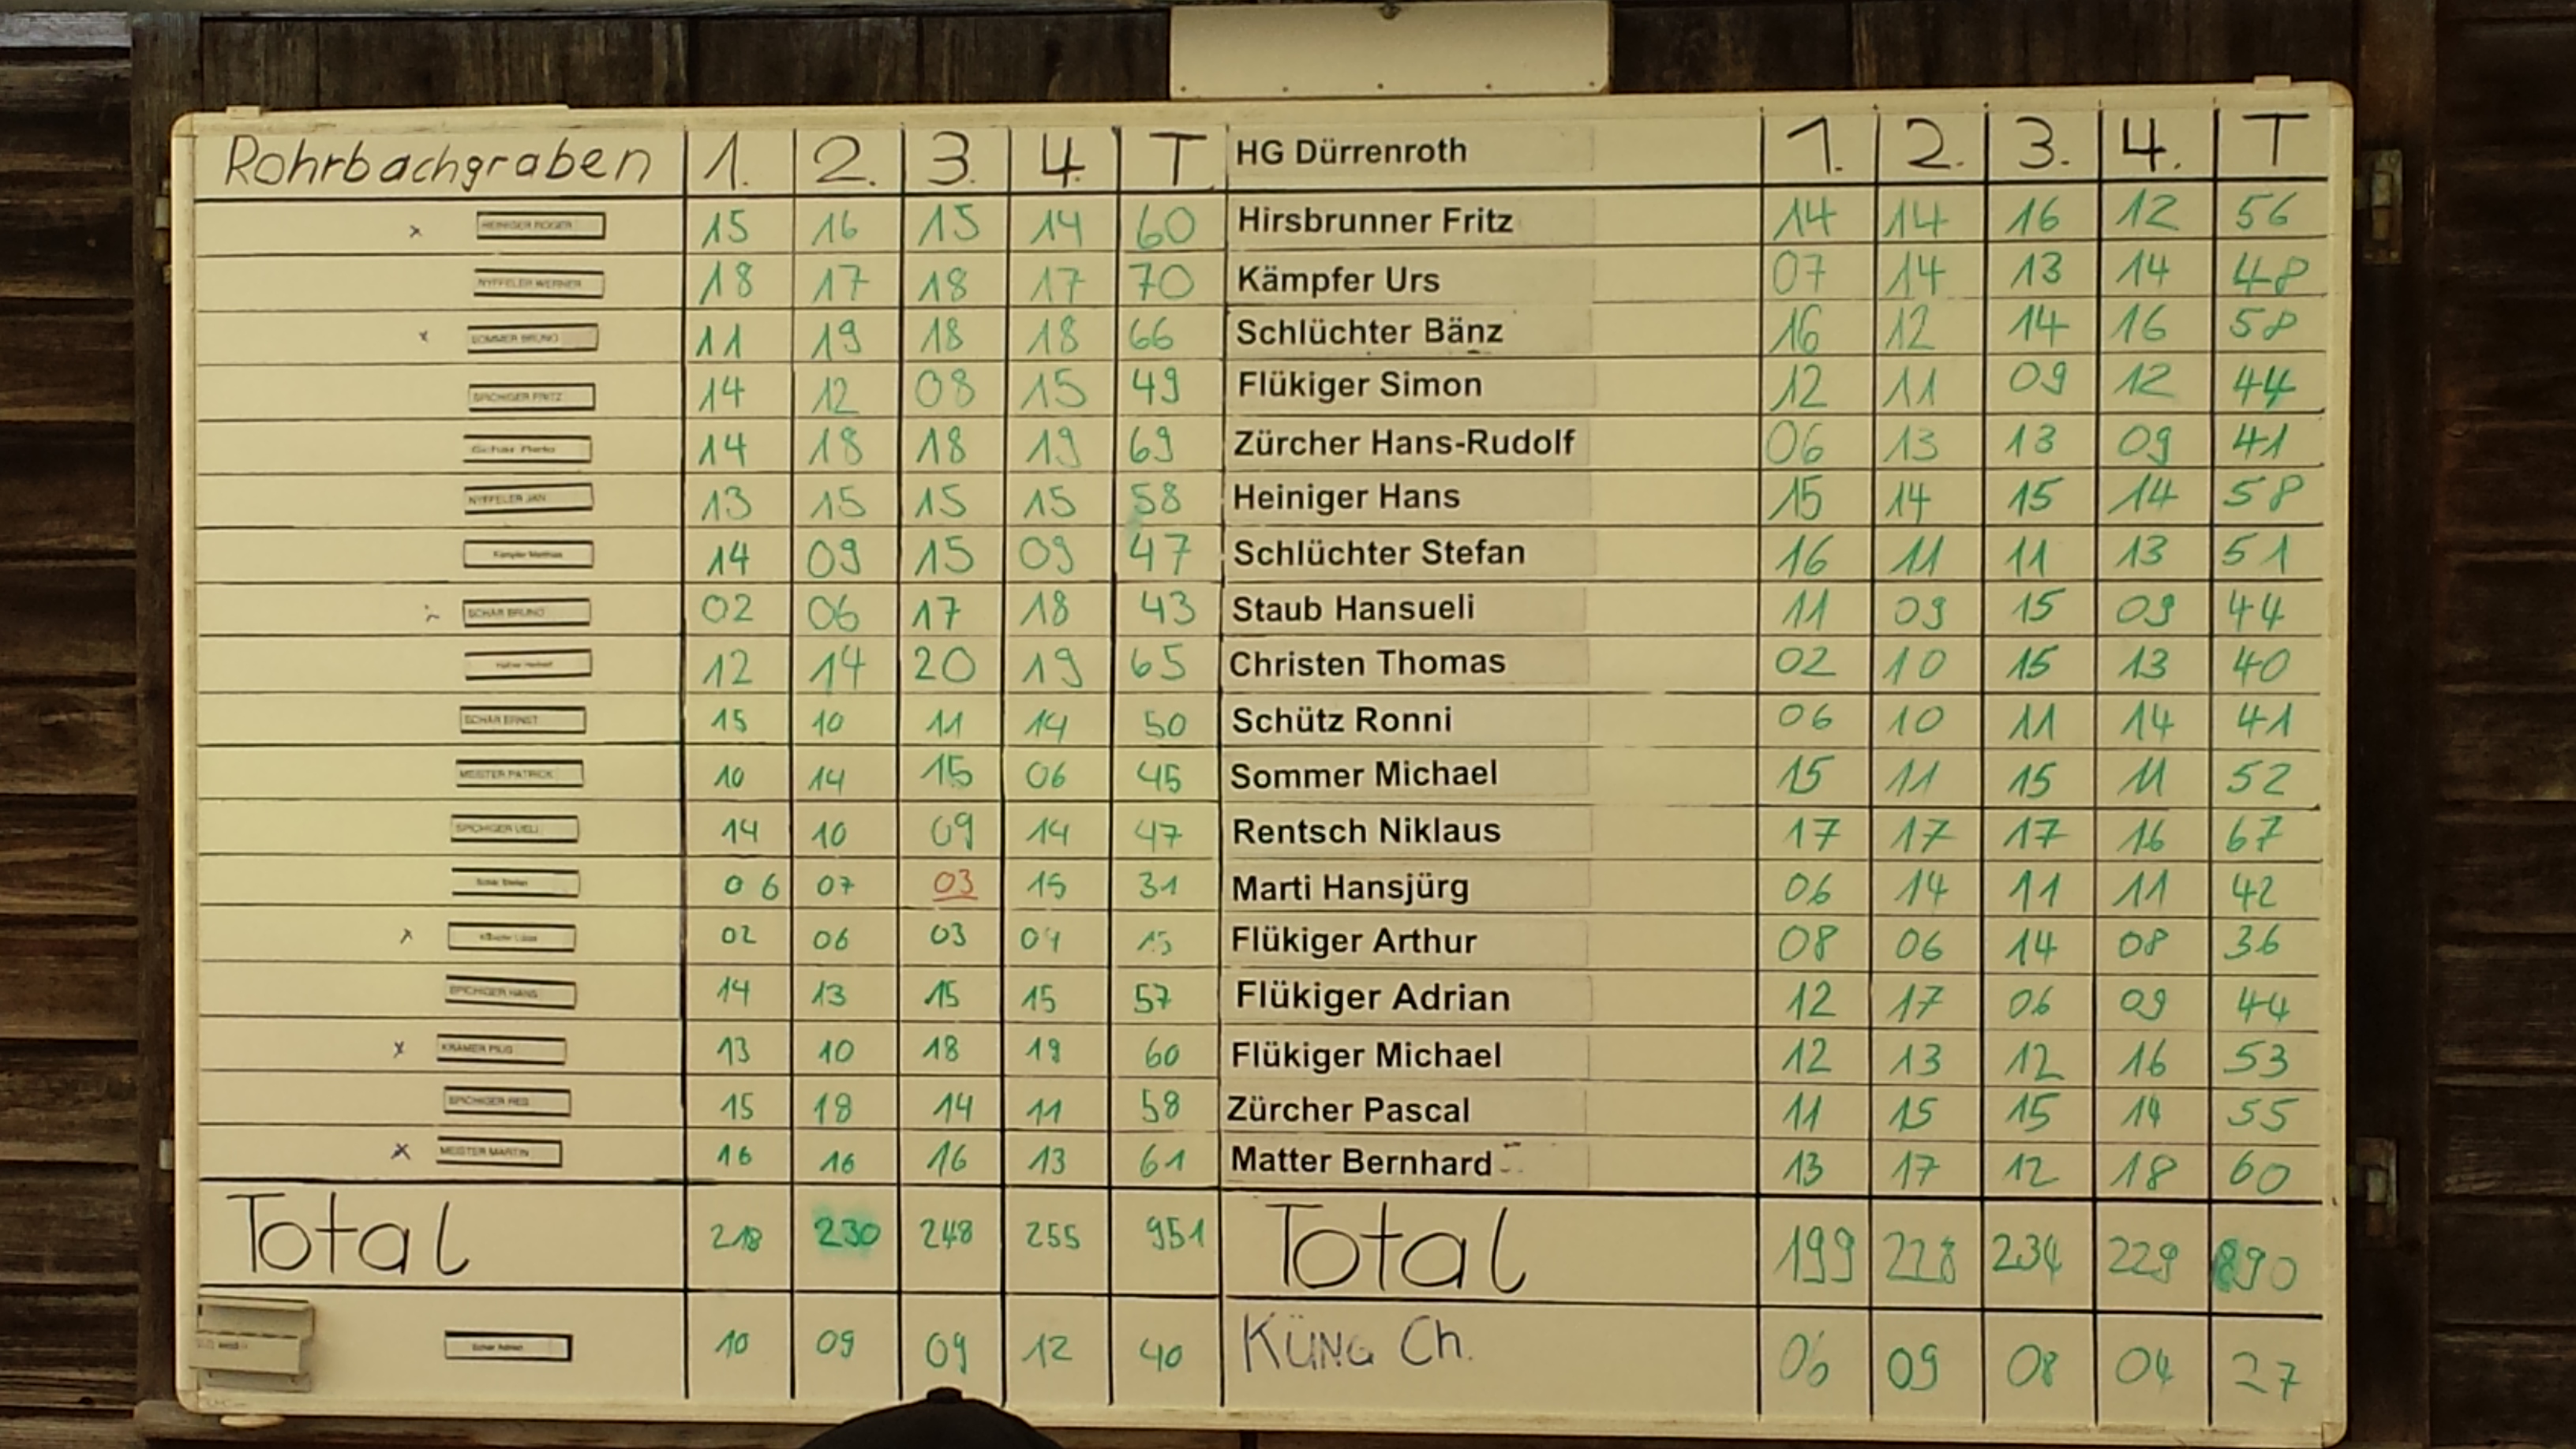 Rohrbachgraben 1. 2. 3. 4. T HG Dürrenroth 1. 2. 3. 4. T
x HEINIGER ROGER 15 16 15 14 60 Hirsbrunner Fritz 14 14 16 12 56
NYFFELER WERNER 18 17 18 17 70 Kämpfer Urs 07 14 13 14 48
x SOMMER BRUNO 11 19 18 18 66 Schlüchter Bänz 16 12 14 16 58
SPICHIGER FRITZ 14 12 08 15 49 Flükiger Simon 12 11 09 12 44
14 18 18 19 69 Zürcher Hans-Rudolf 06 13 13 09 41
NYFFELER JAN 13 15 15 15 58 Heiniger Hans 15 14 15 14 58
Kämpfer Matthias 14 09 15 09 47 Schlüchter Stefan 16 11 11 13 51
SCHÄR BRUNO 02 06 17 18 43 Staub Hansueli 11 09 15 09 44
12 14 20 19 65 Christen Thomas 02 10 15 13 40
SCHÄR ERNST 15 10 11 14 50 Schütz Ronni 06 10 11 14 41
MEISTER PATRICK 10 14 15 06 45 Sommer Michael 15 11 15 11 52
SPICHIGER UELI 14 10 09 14 47 Rentsch Niklaus 17 17 17 16 67
Schär Stefan 06 07 03 15 31 Marti Hansjürg 06 14 11 11 42
x 02 06 03 04 15 Flükiger Arthur 08 06 14 08 36
SPICHIGER HANS 14 13 15 15 57 Flükiger Adrian 12 17 06 09 44
x KRÄMER PIUS 13 10 18 19 60 Flükiger Michael 12 13 12 16 53
SPICHIGER RES 15 18 14 11 58 Zürcher Pascal 11 15 15 14 55
x MEISTER MARTIN 16 16 16 13 61 Matter Bernhard 13 17 12 18 60
Total 218 230 248 255 951 Total 199 228 234 229 890
Schär Adrian 10 09 09 12 40 KÜNG Ch. 06 09 08 04 27